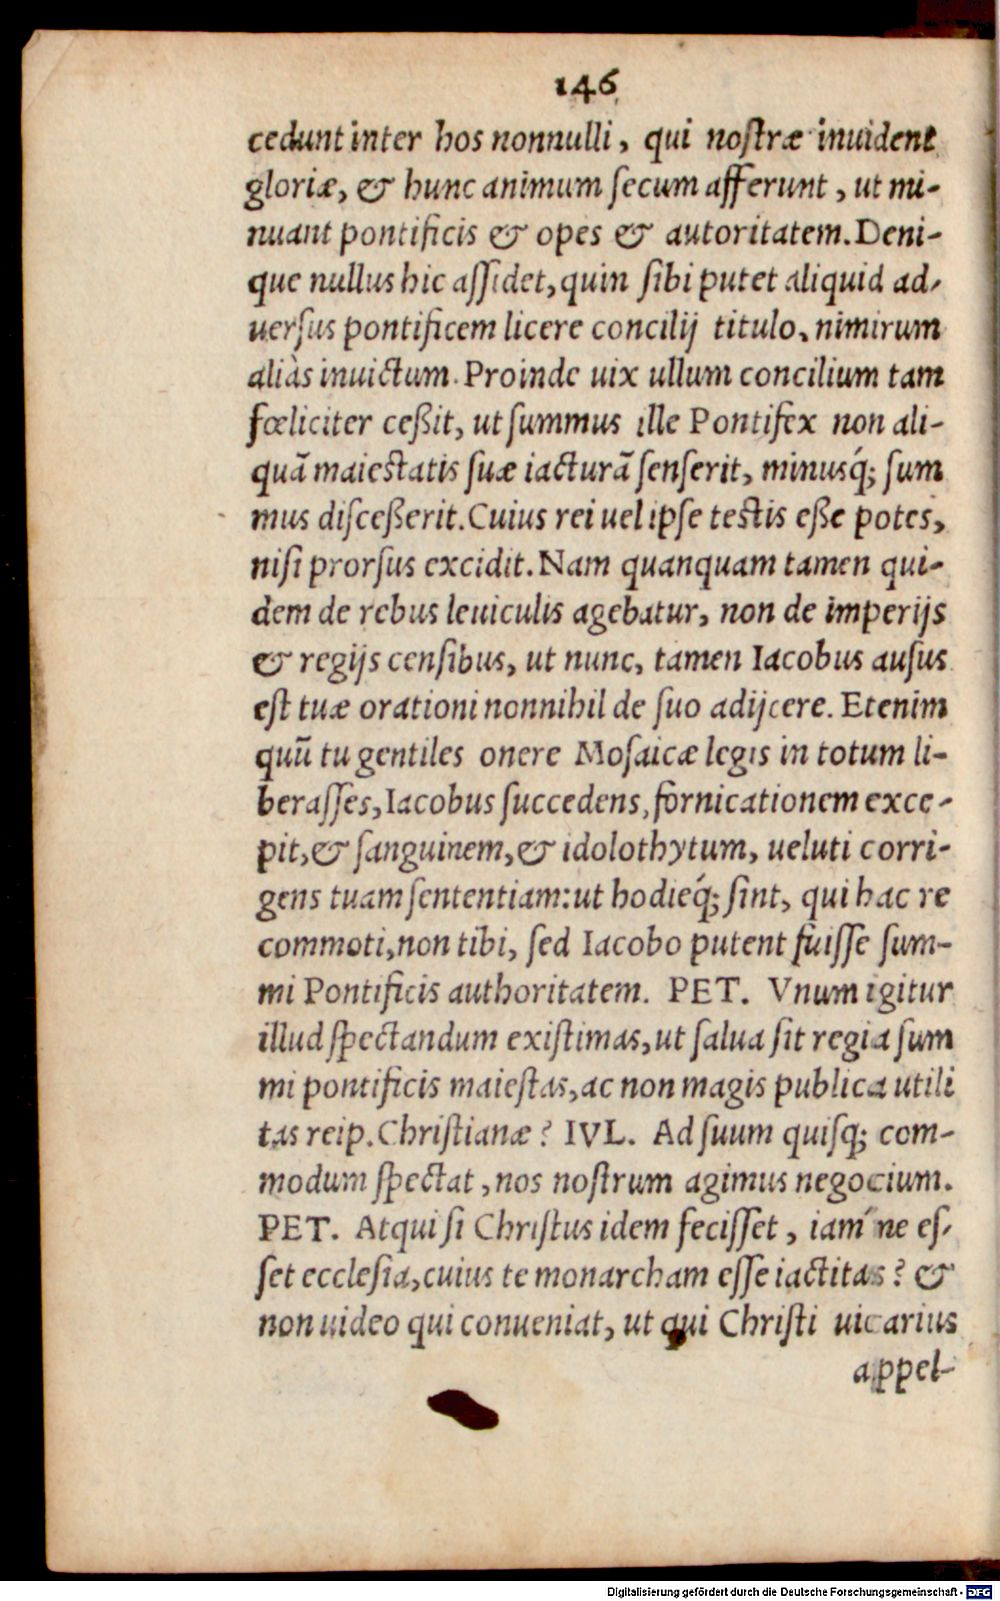 146
cedunt inter hos nonnulli, qui nostræ inuident
gloriæ, & hunc animum secum afferunt, ut mi-
nuant pontificis & opes & autoritatem. Deni-
que nullus hic assidet, quin sibi putet aliquid ad-
uersus pontificem licere concilij titulo, nimirum
aliàs inuictum. Proinde uix ullum concilium tam
fœliciter ceßit, ut summus ille Pontifex non ali-
quã maiestatis suæ iacturã senserit, minusq́; sum
mus disceßerit. Cuius rei uel ipse testis eße potes,
nisi prorsus excidit. Nam quanquam tamen qui-
dem de rebus leuiculis agebatur, non de imperijs
& regijs censibus, ut nunc, tamen Iacobus ausus
est tuæ orationi nonnihil de suo adijcere. Etenim
quũ tu gentiles onere Mosaicæ legis in totum li-
berasses, Iacobus succedens, fornicationem exce-
pit, & sanguinem, & idolothytum, ueluti corri-
gens tuam sententiam: ut hodieq́; sint, qui hac re
commoti, non tibi, sed Iacobo putent fuisse sum-
mi Pontificis authoritatem. PET. Vnum igitur
illud spectandum existimas, ut salua sit regia sum
mi pontificis maiestas, ac non magis publica utili
tas reip. Christianæ? IVL. Ad suum quisq; com-
modum spectat, nos nostrum agimus negocium.
PET. Atqui si Christus idem fecisset, iam ne es-
set ecclesia, cuius te monarcham esse iactitas? &
non uideo qui conueniat, ut qui Christi uicarius
appel-
Digitalisierung gefördert durch die Deutsche Forschungsgemeinschaft - DFG